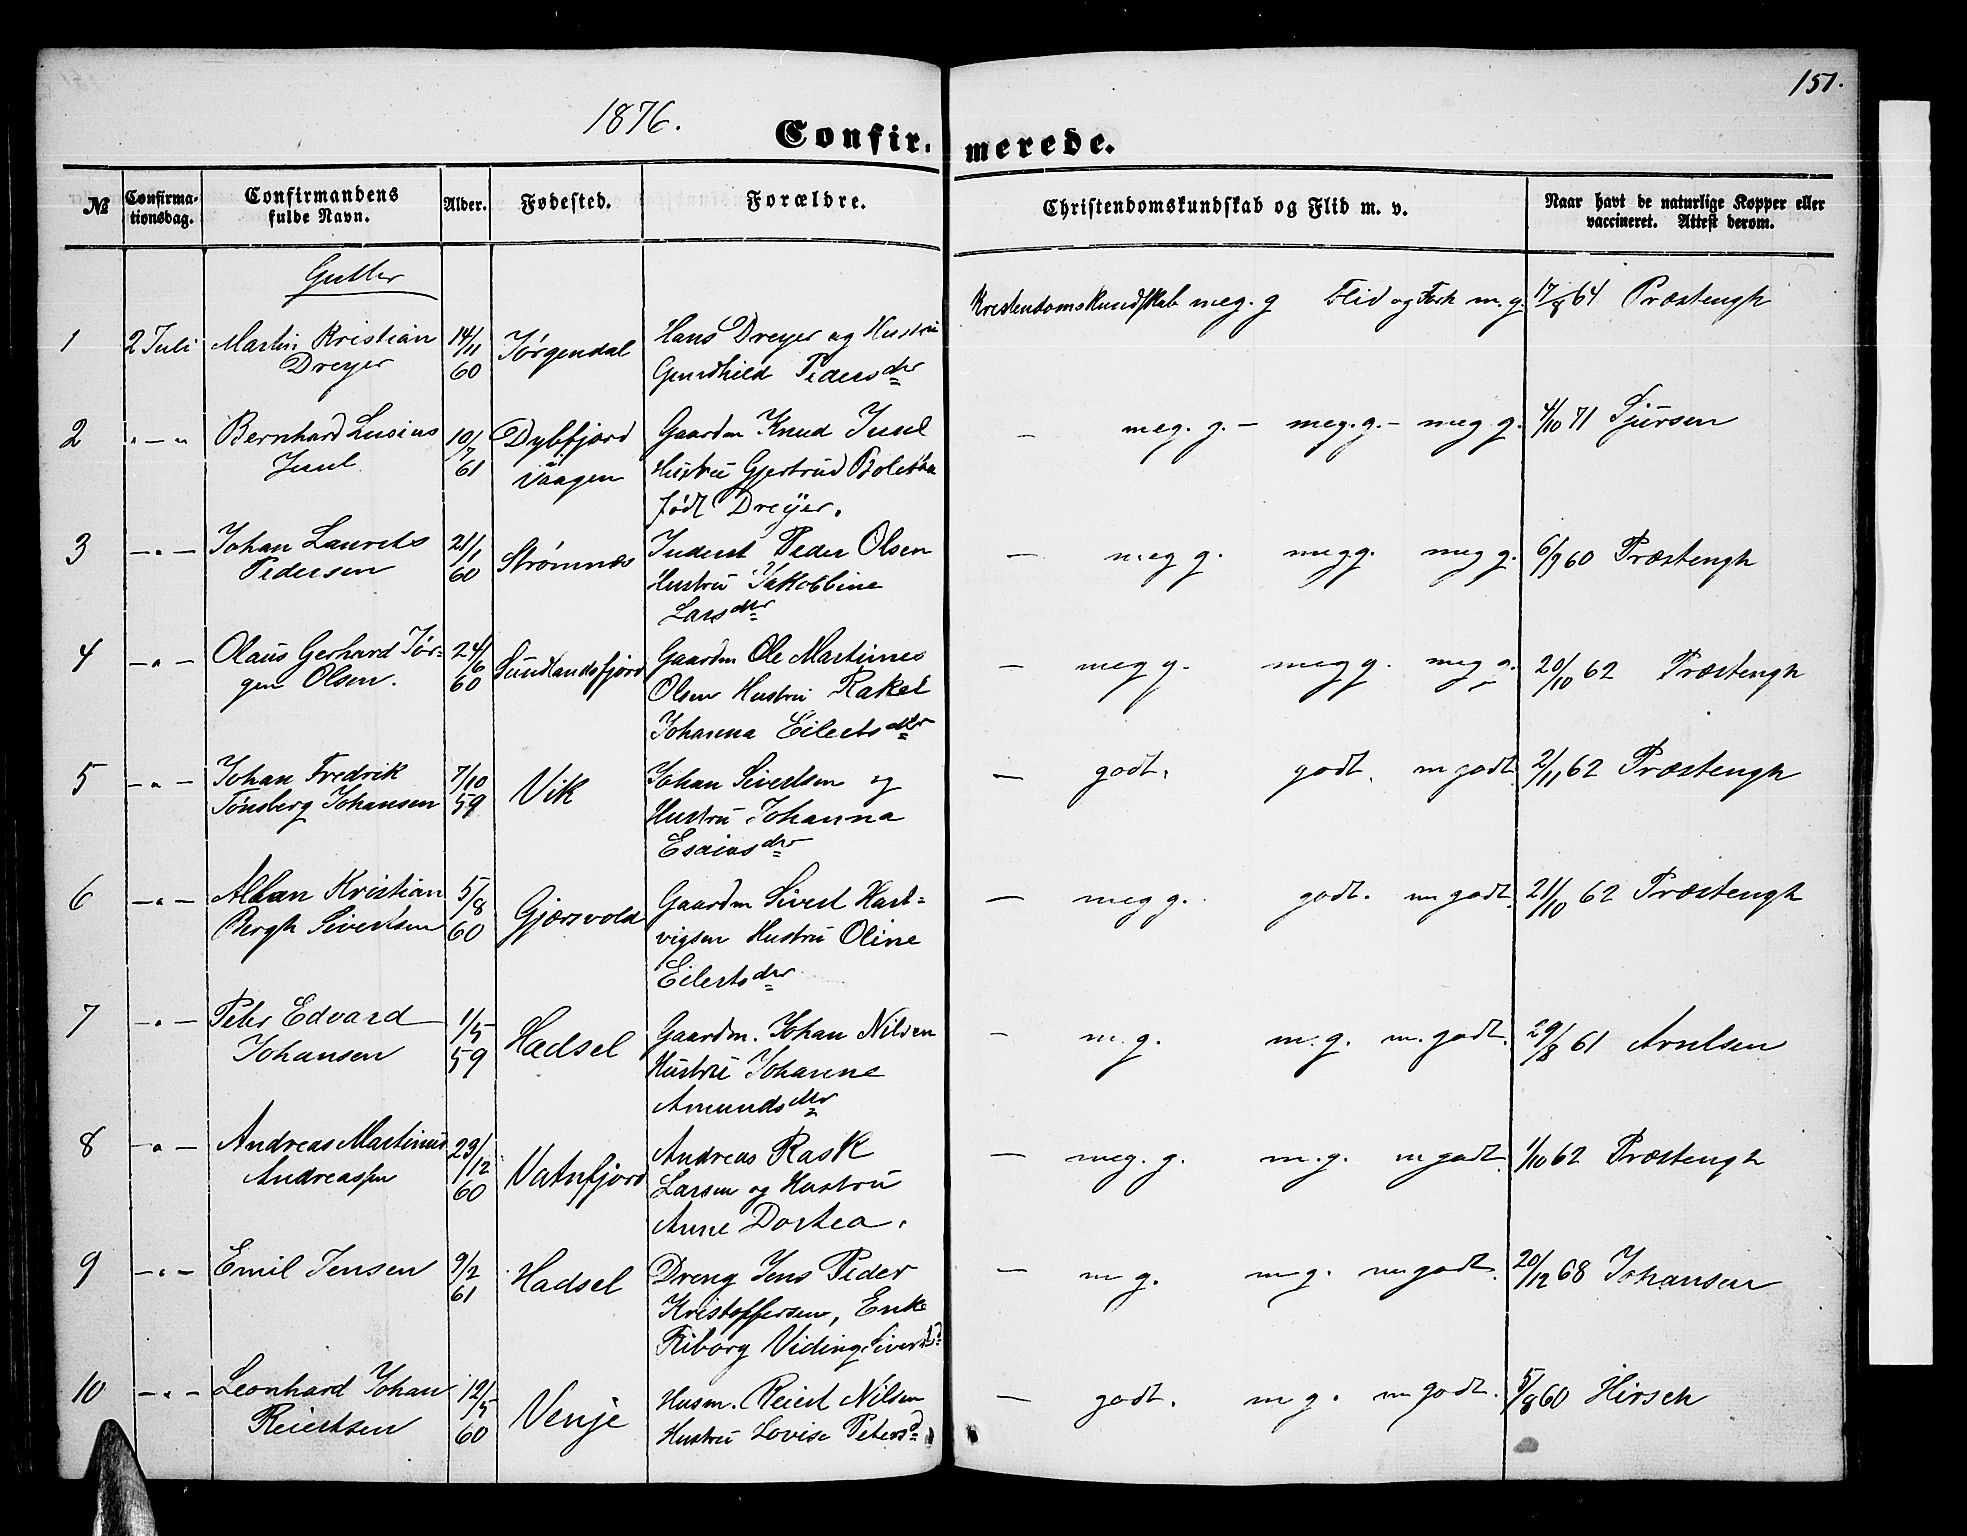 151.
1876.
Confir- merede.
№ Confirma-tionsdag. Confirmandens fulde Navn. Alder. Fødested. Forældre. Christendomskundskab og Flid m. v. Naar havt de naturlige Kopper eller vaccineret. Attest derom.
Gutter
1 2 Juli Martin Kristian Dreyer 14/11 60 Jørgendal Hans Dreyer og Hustru Gundhild Pedersdtr Kristendomskundskab meg. g Flid og Forh m. g. 17/8 64 Præstengh
2 " — " Bernhard Lusius Juul 10/7 61 Dybfjord Vaagen Gaardm Knud Juul Hustru Gjertrud Boletha født Dreyer. — meg. g. — meg. g. — meg g. 4/10 71 Sjursen
3 — " — Johan Laurits Pedersen 21/1 60 Strømnes Inderst Peder Olsen Hustru Jakobbine Larsdtr — meg g. meg g. meg g. 6/9 60 Præstengh
4 — " — Olaus Gerhard Jør-gen Olsen. 24/6 60 Sundlandsfjord Gaardm Ole Martines Olsen Hustru Rakel Johanna Eilertsdtr — meg g. meg g. meg g. 20/10 62 Præstengh
5 — " — Johan Fredrik Tønsberg Johansen 7/10 59 Vik Johan Sivertsen og Hustru Johanna Esaiasdtr — godt. godt. m godt. 2/11 62 Præstengh
6 — " — Alban Kristian Bergh Sivertsen 5/8 60 Gjærsvold Gaardm Sivert Hart-vigsen Hustru Oline Eilertsdtr — meg g. godt. m godt. 21/10 62 Præstengh
7 — " — Peter Edvard Johansen 1/5 59 Hadsel Gaardm. Johan Nilsen Hustru Johanne Amundsdtr — m. g. m. g. m. godt. 29/8 61 Arntsen
8 — " — Andreas Martinus Andreassen 29/12 60 Vatnfjord Andreas Rask Larsen og Hustru Anne Dortea. — meg. g. m. g. m godt. 1/10 62 Præstengh
9 — " — Emil Jensen 9/2 61 Hadsel Dreng Jens Peder Kristoffersen, Enke Riborg Viding. Sivertsd. — m g. m g. m godt. 20/12 68 Johansen
10 — " — Leonhard Johan Reiertsen 12/5 60 Venje Husm. Reiert Nilsen Hustru Lovise Petersd. — godt. m g. m godt. 5/8 60 Hirsch